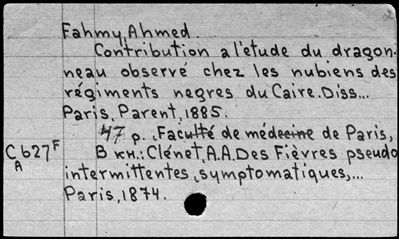 Fahmy, Ahmed.
Contribution a l'etude du dragon-
neau observé chez les nubiens des
régiments negres du Caire. Diss...
Paris, Parent, 1885.
47 p. (Faculté de médecine de Paris,
C627F В кн.: Clénet, A.A. Des Fièvres pseudo
A intermittentes symptomatiques,...
Paris, 1874.